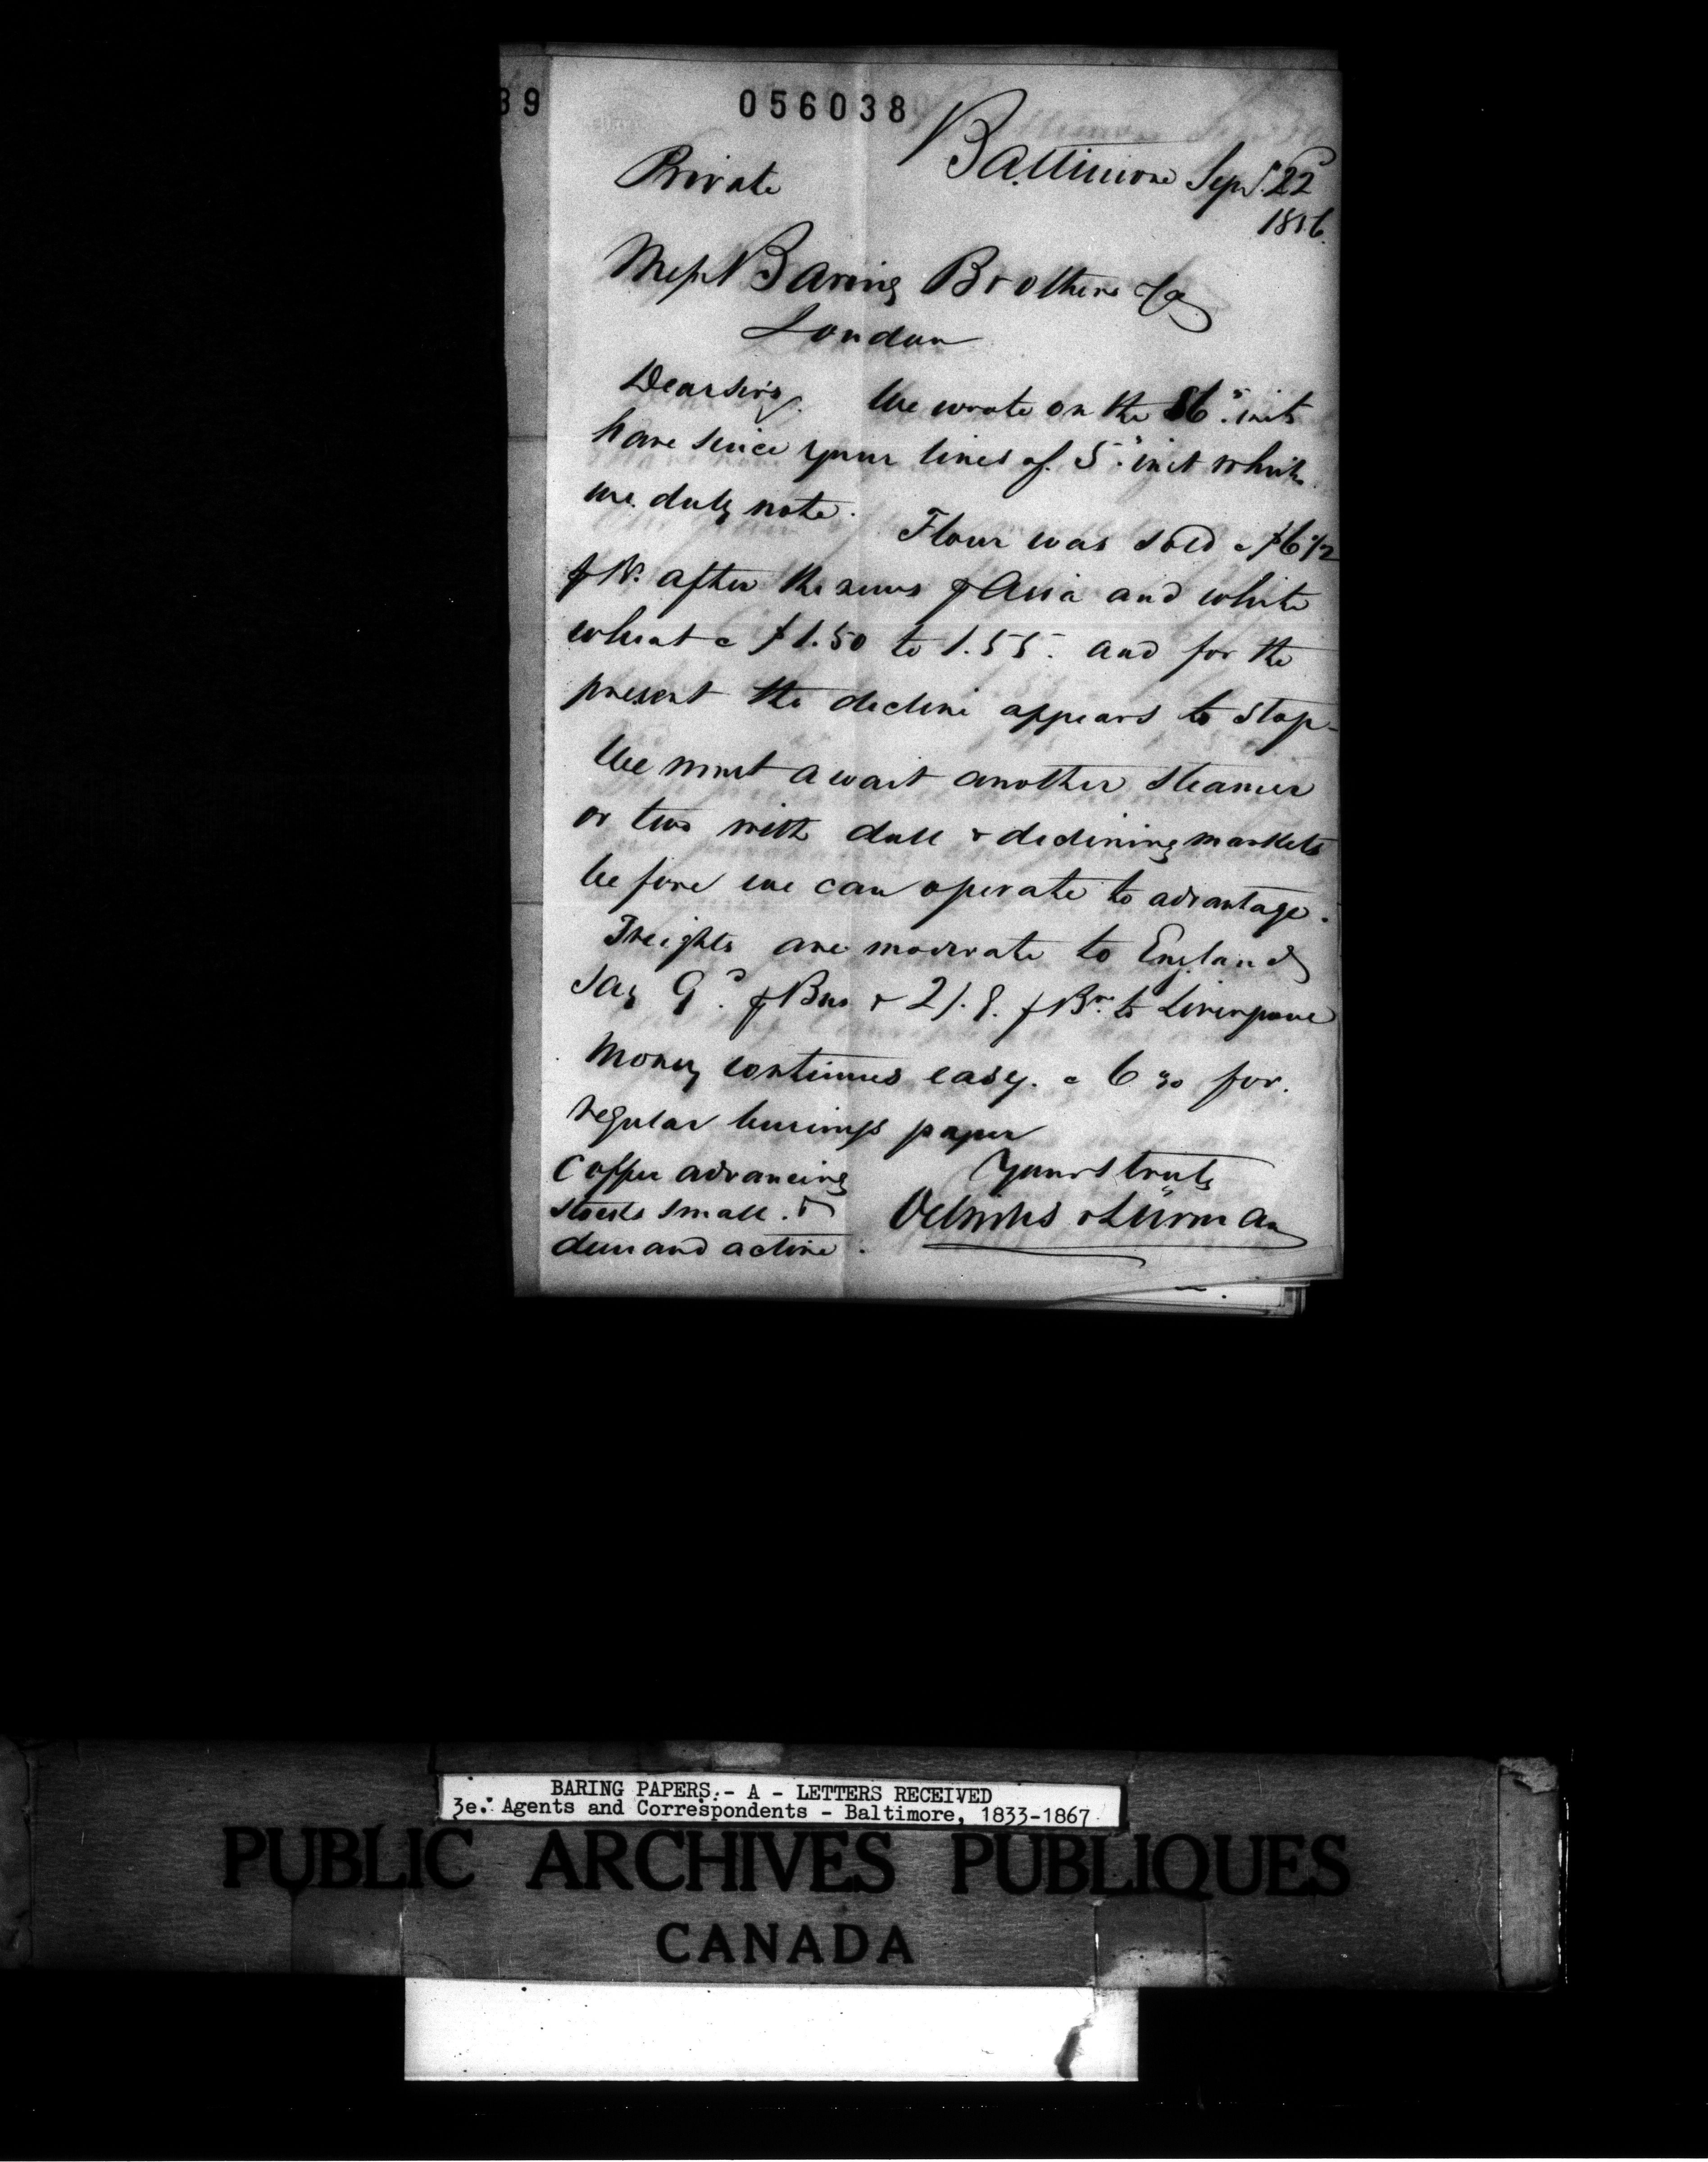 39
056038
Private
Baltimore Sept. 22
1856.
Messrs Baring Brothers & Co
London
Dear Sirs, We wrote on the 16" inst
have since your lines of 5" inst which
we duly note.
Flour was sold a $6 1/2
p Br. after the news p Asia and white
wheat a $1.50 to 1.55. and for the
present the decline appears to stop-
We must await another steamer
or two with dull & declining markets
before we can operate to advantage.
Freights are moderate to England
say 9d. p Bus & 2/.9. p Br. to Liverpool
Money continues easy. a 6 % for.
regular business paper
Coffee advancing
stocks small. &
demand active.
Yours truly
Oelrichs & Lürman
BARING PAPERS.- A - LETTERS RECEIVED
3e. Agents and Correspondents - Baltimore, 1833-1867
PUBLIC ARCHIVES PUBLIQUES
CANADA